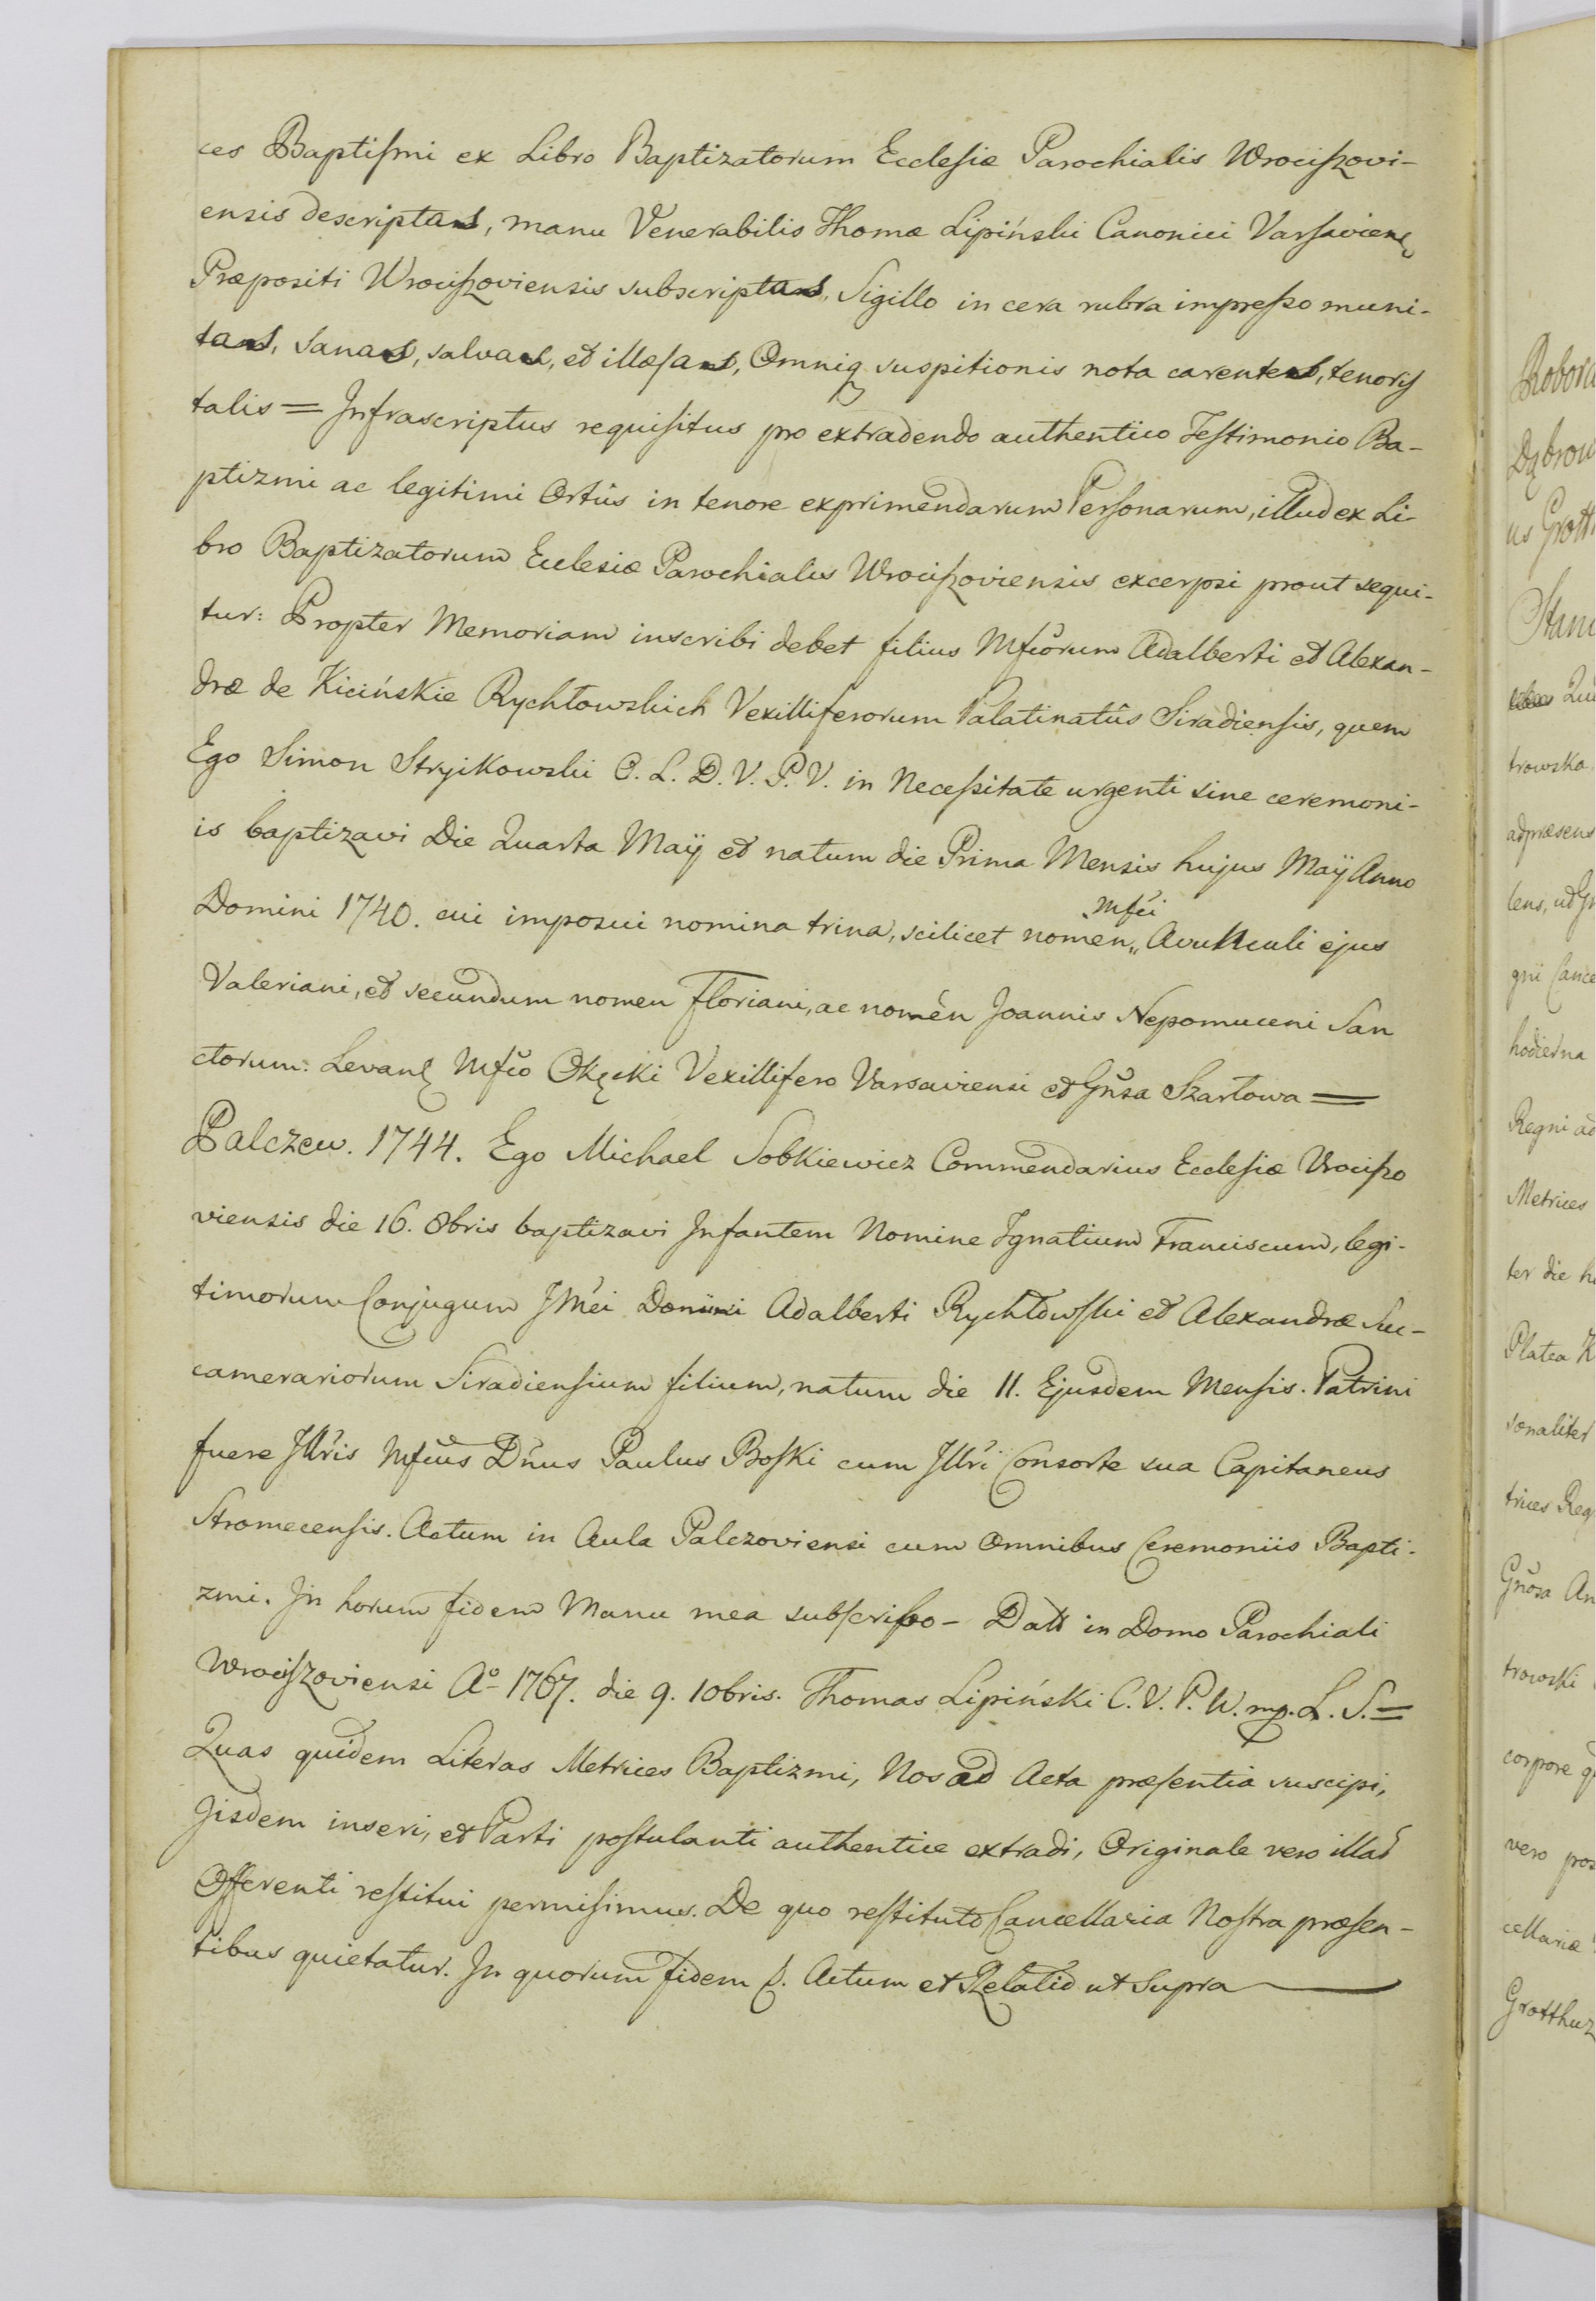 ces Baptismi ex Libro Baptizatorum Ecclesiæ Parochialis Wrociszovi-
ensis descriptas, manu Venerabilis Thomæ Lipiński Canonici Varsaviens
Præpositi Wrociszoviensis subscriptas, Sigillo in cera rubra impresso muni-
tas, sanas, salvas, et illæsas, Omniq suspitionis nota carentes, tenoris
talis = Infrascriptus requisitus pro extradendo authentico Testimonio Ba-
ptizmi ac legitimi Ortûs in tenore exprimendarum Personarum, illud ex Li-
bro Baptizatorum Ecclesiæ Parochialis Wrociszoviensis excerpsi prout sequi-
tur: Propter Memoriam inscribi debet filius Mfcorum Adalberti et Alexan-
dræ de Kicińskie Rychłowskich Vexilliferorum Palatinatûs Siradiensis, quem
Ego Simon Stryikowski C. L. D. V. P. V. in Necessitate urgenti sine ceremoni-
is baptizavi Die Quarta Maÿ et natum die Prima Mensis hujus Maÿ Anno
Mfci
Domini 1740. cui imposui nomina trina, scilicet nomen „ Avunculi ejus
Valeriani, et secundum nomen Floriani, ac nomen Joannis Nepomuceni San
ctorum: Levans Mfco Okęcki Vexillifero Varsaviensi et Gnsa Szartowa =
Palczew. 1744. Ego Michael Sobkiewicz Commendarius Ecclesiæ Vrociszo
viensis die 16. 8bris baptizavi Infantem Nomine Ignatium Franciscum, legi-
timorum Conjugum JMci Domini Adalberti Rychłowski et Alexandræ Suc-
camerariorum Siradiensium filium, natum die 11. Ejusdem Mensis. Patrini
fuere Jllris Mfcus Dnus Paulus Boski cum Jllri Consorte sua Capitaneus
Stromecensis. Actum in Aula Palczoviensi cum Omnibus Ceremoniis Bapti-
zmi. In horum fidem Manu mea subscribo - Datt in Domo Parochiali
Wrociszoviensi Aº 1767. die 9. 10bris. Thomas Lipiński C. V. P. W. mp. L. S. =
Quas quidem Literas Metrices Baptizmi, Nos ad Acta præsentia suscipi,
Jisdem inseri, et Parti postulanti authentice extradi, Originale vero illud
Offerenti restitui permisimus. De quo restituto Cancellaria Nostra præsen-
tibus quietatur. In quorum fidem p. Actum et Relatio ut Supra
Robora
Dąbrow
us Grott
Stani
trowska
adpræsens
lens, ut
gni Cance
hodierna
Regni ad
Metrices
ter die h
Platea K
sonaliter
trices Reg
Gnosa An
trowski
corpore q
vero pos
cellariæ
Grotthuz